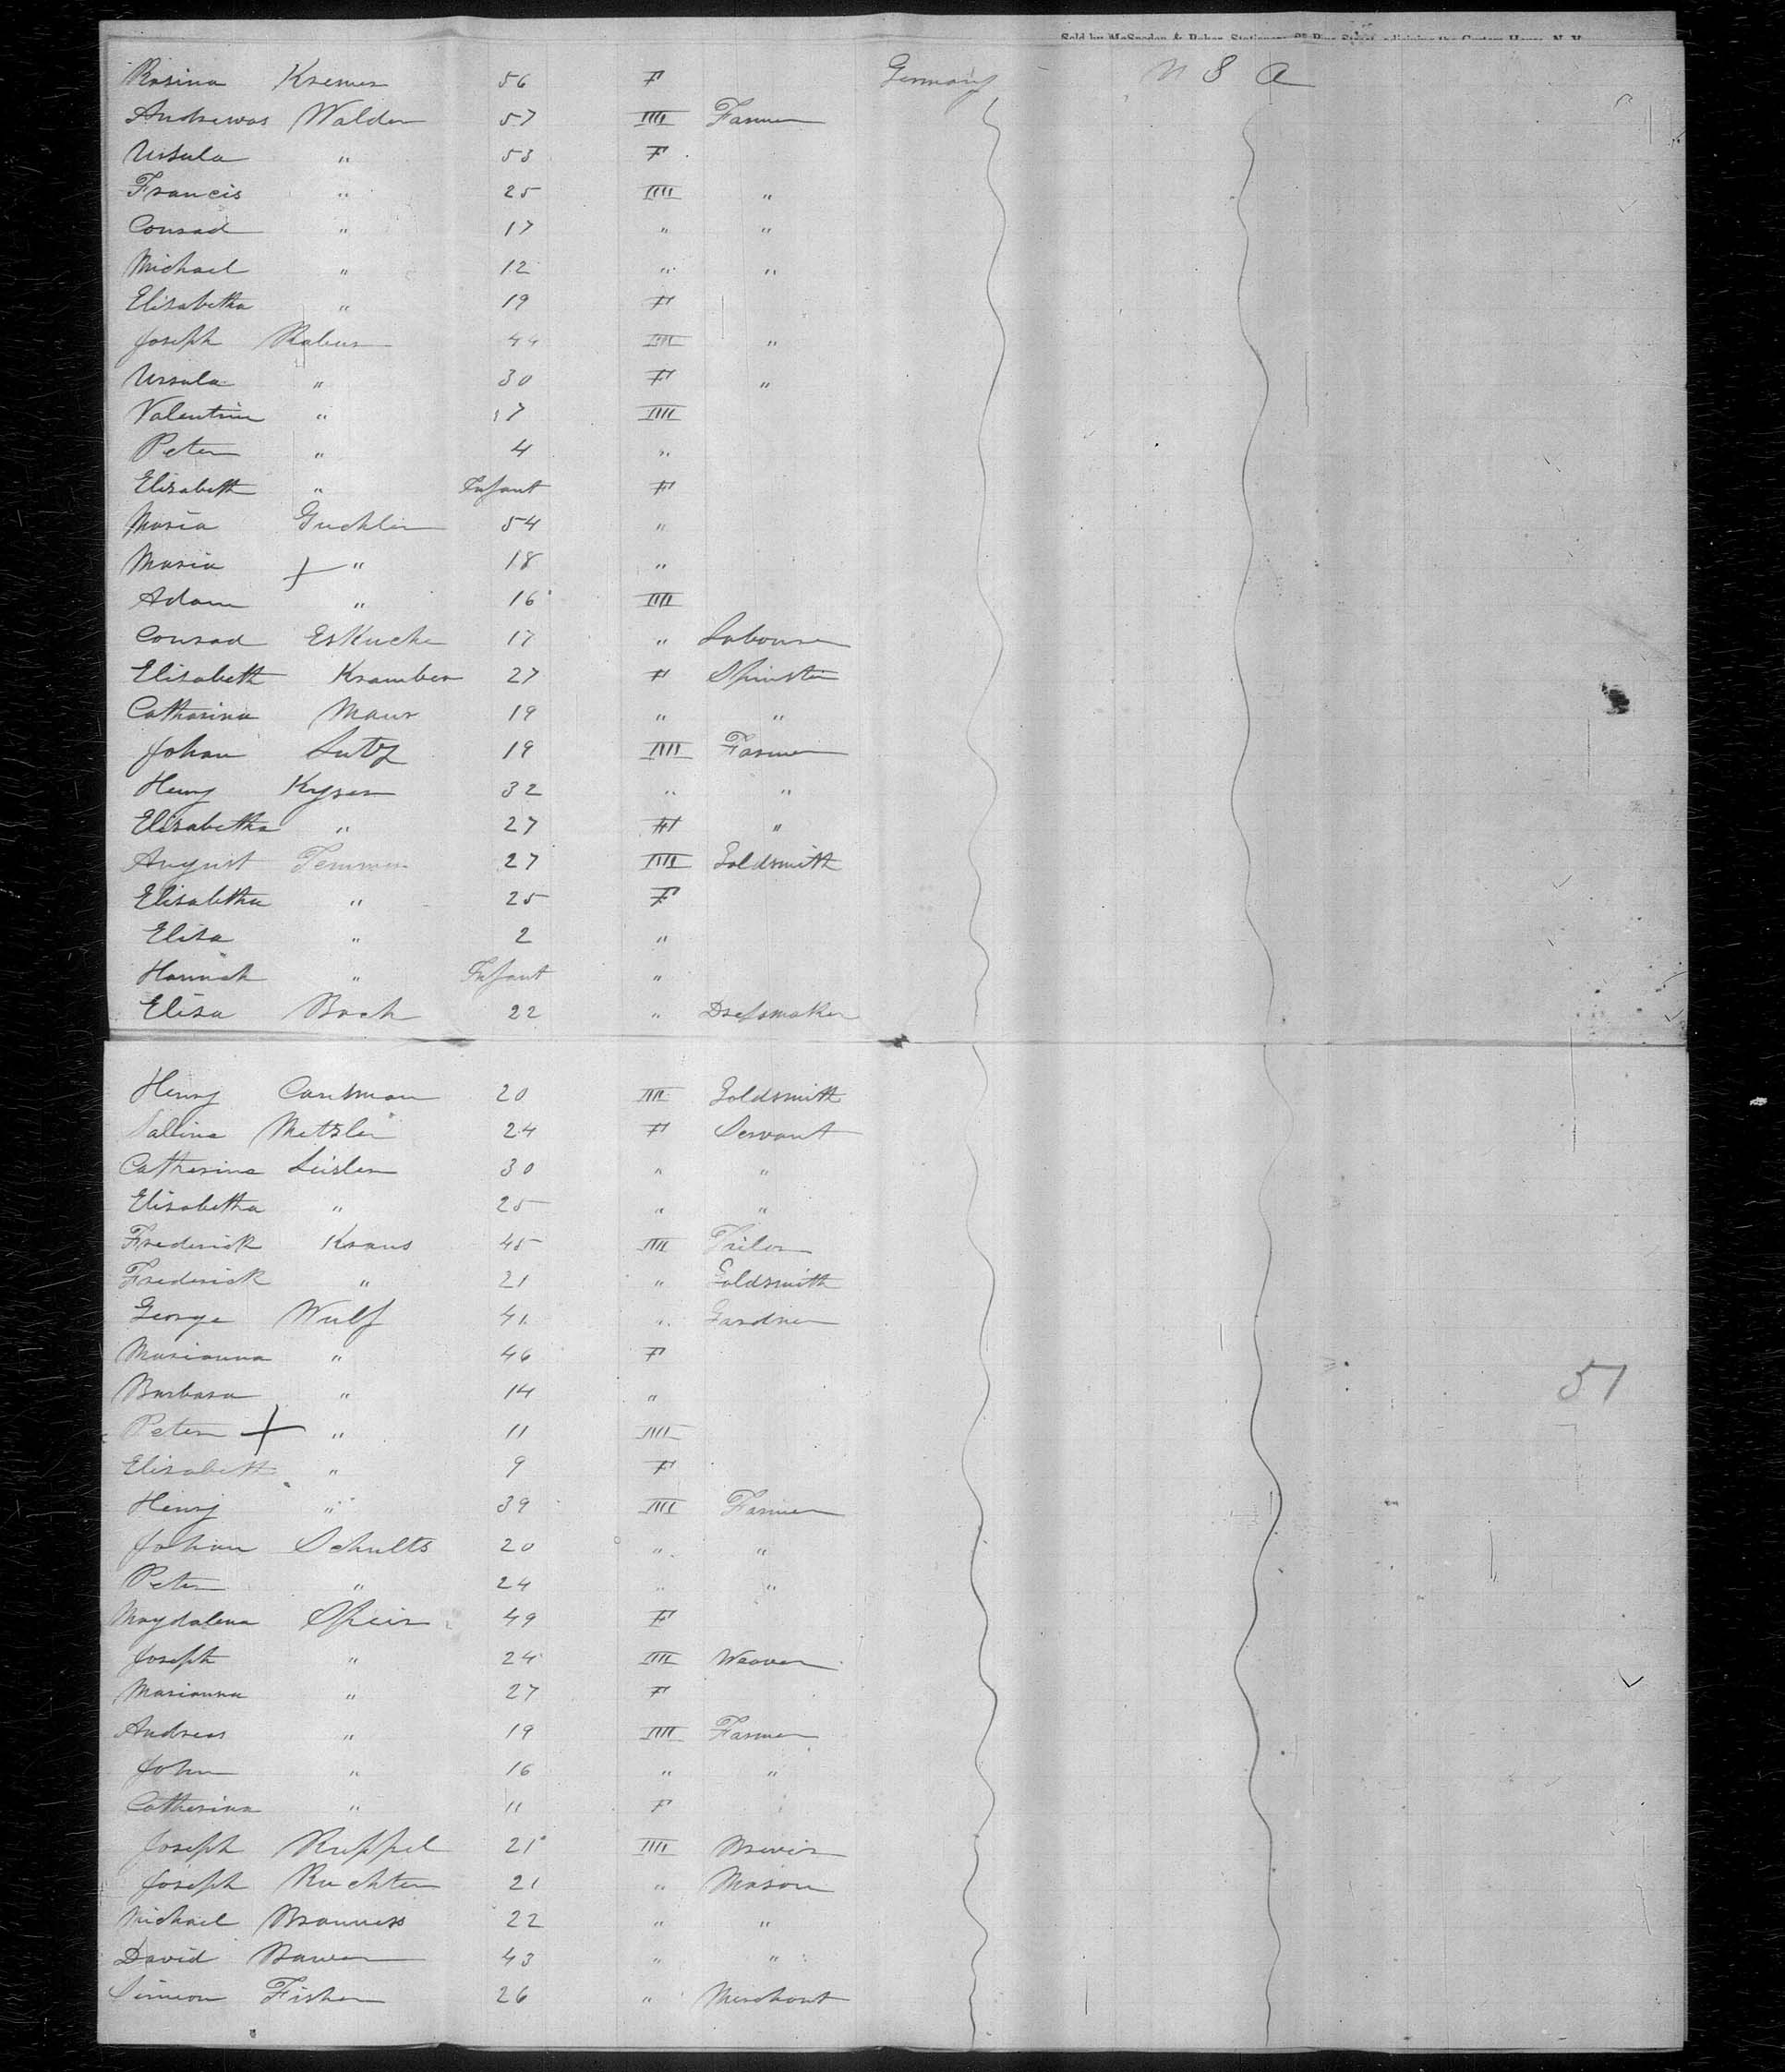 Sold by McSpedon & Baker, Stationers, 25 Pine Street, adjoining the Custom House, N. Y.
Rosina Kremer 56 F Germany U S A
Andrewas Walder 57 M Farmer
Ursula " 53 F
Francis " 25 M "
Conrad " 17 " "
Michael " 12 " "
Elisabetha " 19 F
Joseph Rabus 44 M "
Ursula " 30 F "
Valentin " 17 M
Peter " 4 "
Elisabeth " Infant F
Maria Guchlin 54 "
Maria + " 18 "
Adam " 16 M
Conrad Eskuche 17 " Labourer
Elisabeth Kramber 27 F Spinster
Catharina Maur 19 " "
Johan Lutz 19 M Farmer
Henry Kyser 32 " "
Elisabetha " 27 F "
August Temmer 27 M Goldsmith
Elisabetha " 25 F
Elisa " 2 "
Hannah " Infant "
Elisa Boch 22 " Dressmaker
Henry Cansman 20 M Goldsmith
Sallina Metzler 24 F Servant
Catherina Leisler 30 " "
Elisabetha " 25 " "
Frederick Kraus 45 M Tailor
Frederick " 21 " Goldsmith
George Wulf 41 " Gardner
Marianna " 46 F
Barbara " 14 "
51
Peter + " 11 M
Elisabeth " 9 F
Henry " 39 M Farmer
Johan Schults 20 " "
Peter " 24 " "
Magdalena Speis 49 F
Joseph " 24 M Weaver
Marianna " 27 F
Andreas " 19 M Farmer
John " 16 " "
Catherina " 11 F
Joseph Ruppel 21 M Brewer
Joseph Ruchter 21 " Mason
Michael Branness 22 " "
David Bawer 43 " "
Simeon Fisher 26 " Merchant